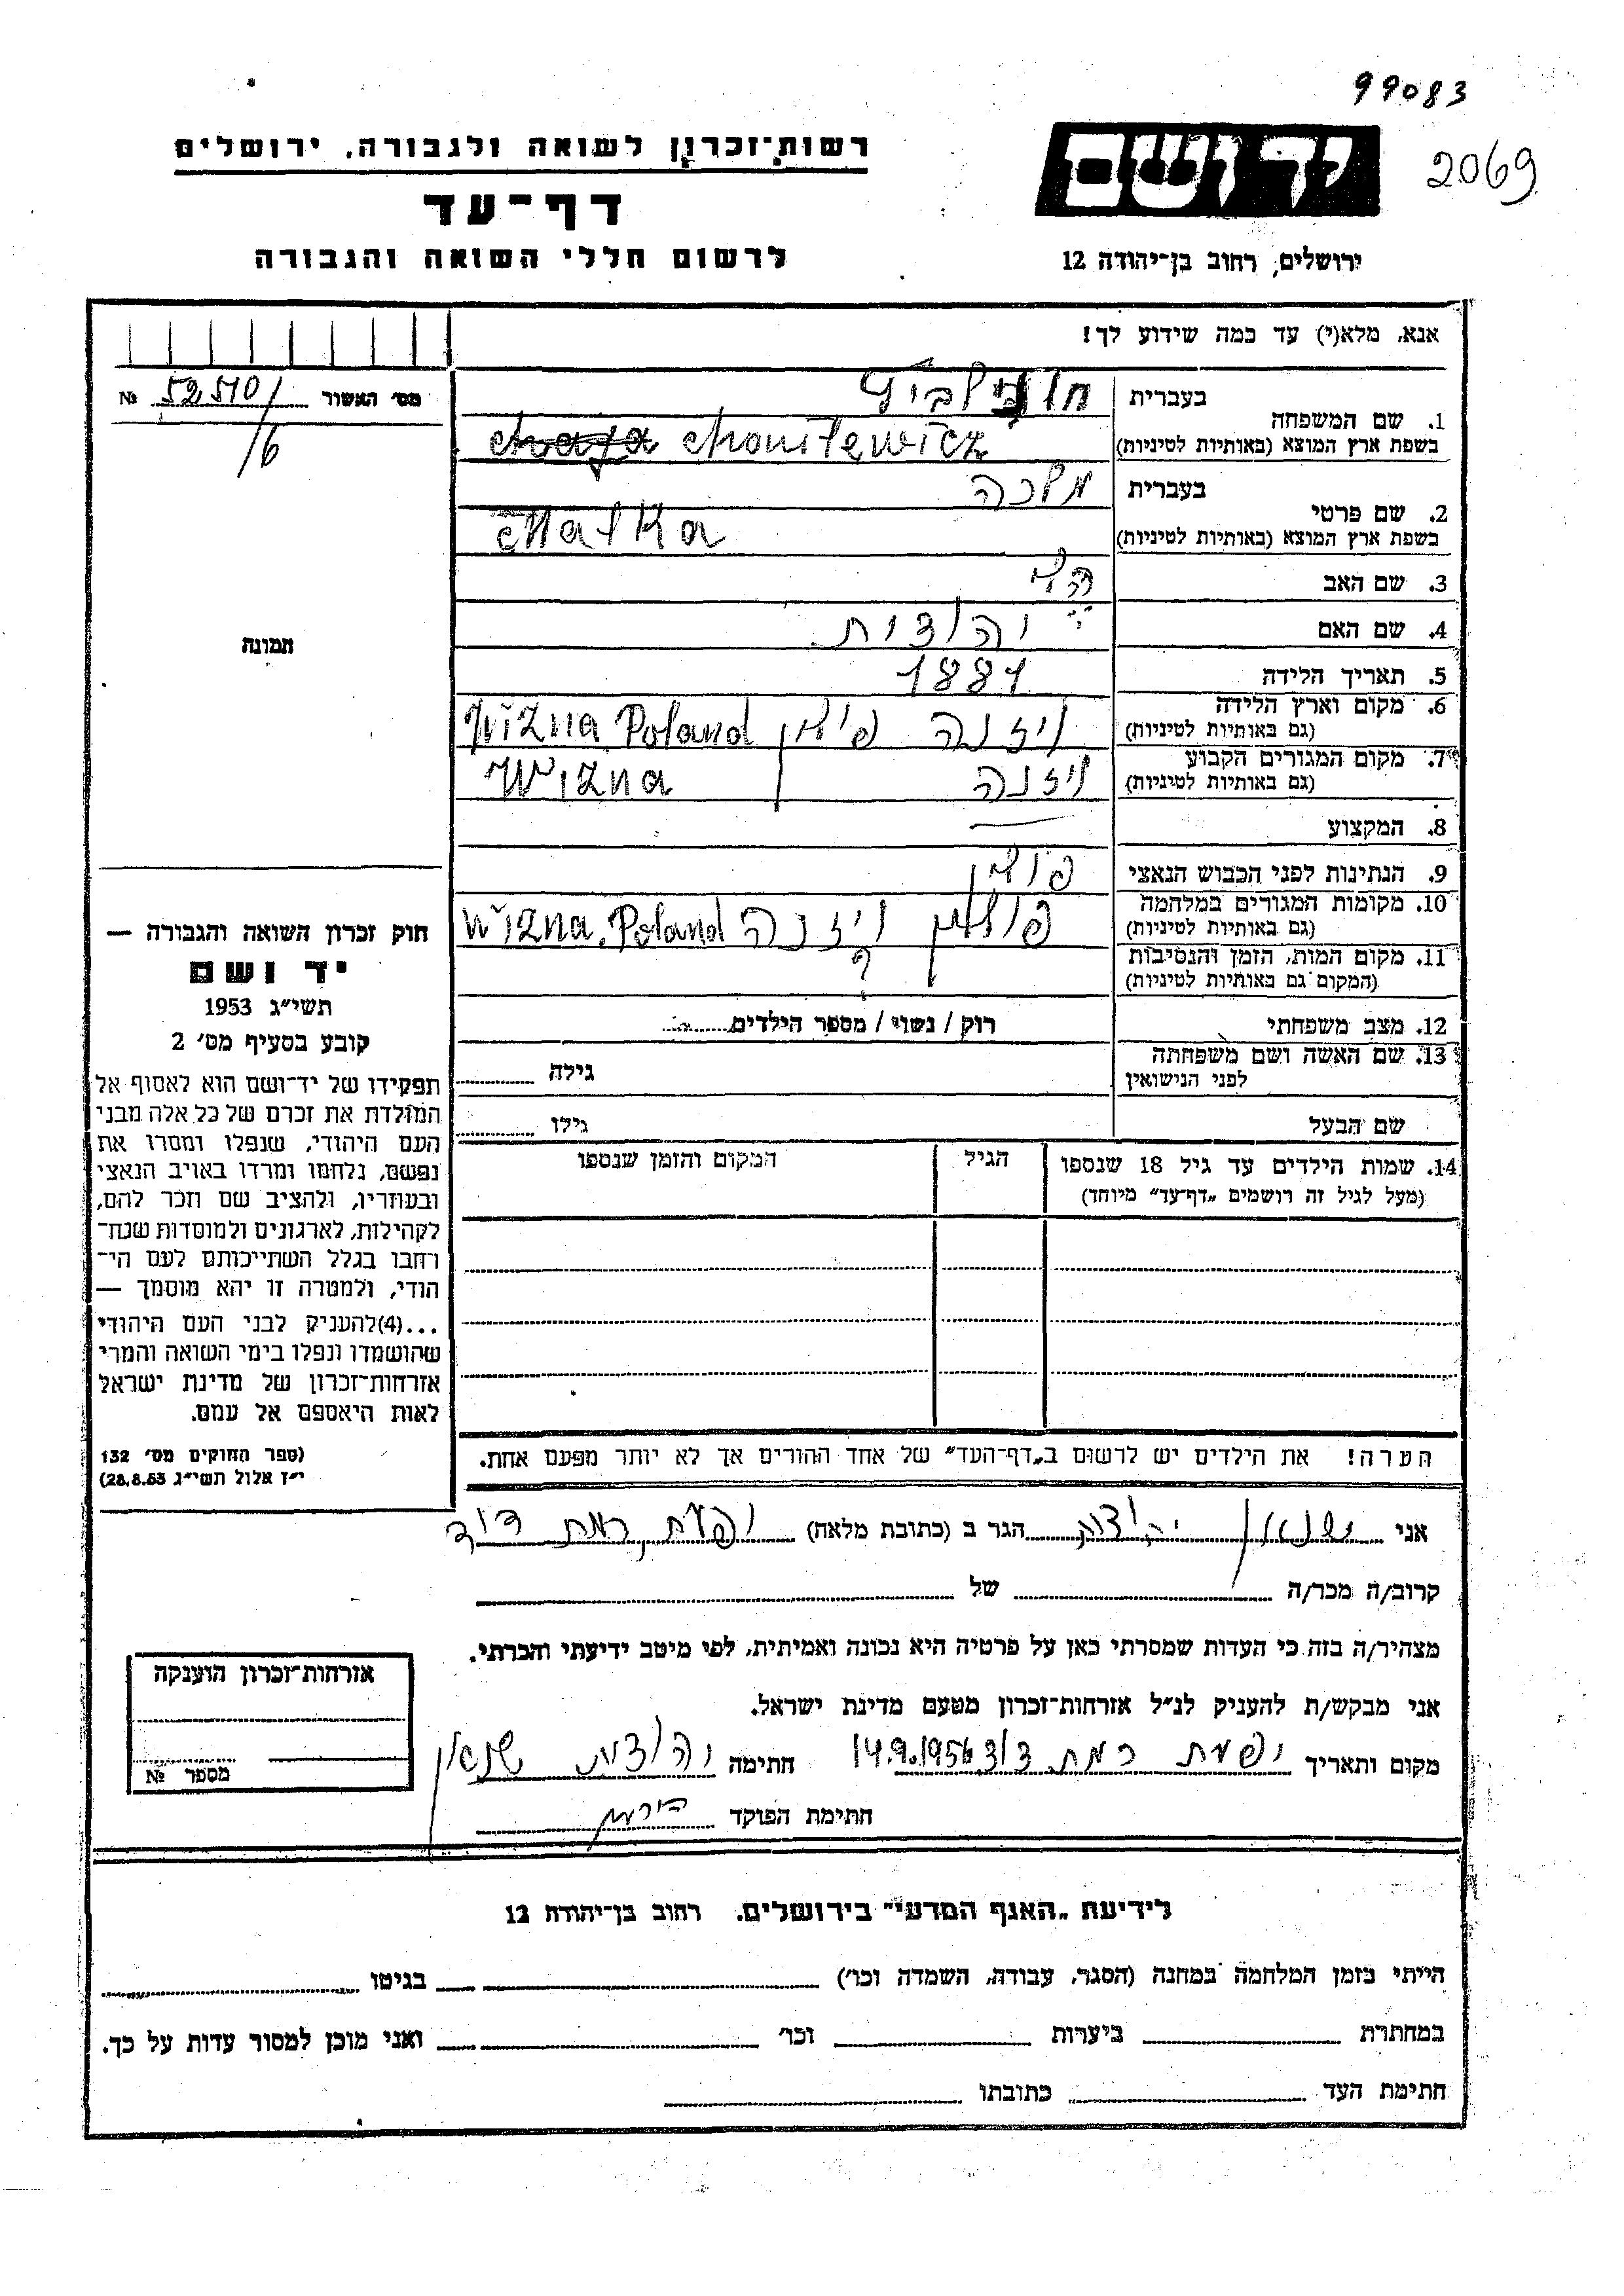 99083
2069
רשות־זכרון לשואה ולגבורה, ירושלים
דף־עד
לרשום חללי השואה והגבורה
יד ושם
ירושלים, רחוב בן־יהודה 12
אנא, מלא(י) עד כמה שידוע לך!
מס׳ האשור 52510/ №
/6
תמונה
1. שם המשפחה
בעברית
בשפת ארץ המוצא (באותיות לטיניות) Chonilewicz
2. שם פרטי
בעברית מלכה
בשפת ארץ המוצא (באותיות לטיניות) Malka
3. שם האב
4. שם האם יהודית
5. תאריך הלידה 1881
6. מקום וארץ הלידה
(גם באותיות לטיניות) ויזנה פולין Wizna Poland
7. מקום המגורים הקבוע
(גם באותיות לטיניות) ויזנה Wizna
8. המקצוע —
9. הנתינות לפני הכבוש הנאצי פולין
10. מקומות המגורים במלחמה
(גם באותיות לטיניות) פולין ויזנה Wizna, Poland
11. מקום המות, הזמן והנסיבות
(המקום גם באותיות לטיניות) ?
12. מצב משפחתי רוק / נשוי / מספר הילדים
13. שם האשה ושם משפחתה
לפני הנישואין גילה
שם הבעל גילו
14. שמות הילדים עד גיל 18 שנספו הגיל המקום והזמן שנספו
(מעל לגיל זה רושמים „דף־עד” מיוחד)
הערה! את הילדים יש לרשום ב„דף־העד” של אחד ההורים אך לא יותר מפעם אחת.
חוק זכרון השואה והגבורה —
יד ושם
תשי״ג 1953
קובע בסעיף מס׳ 2
תפקידו של יד־ושם הוא לאסוף אל
המולדת את זכרם של כל אלה מבני
העם היהודי, שנפלו ומסרו את
נפשם, נלחמו ומרדו באויב הנאצי
ובעוזריו, ולהציב שם וזכר להם,
לקהילות, לארגונים ולמוסדות שנח־
רחבו בגלל השתייכותם לעם הי־
הודי, ולמטרה זו יהא מוסמך —
...(4)להעניק לבני העם היהודי
שהושמדו ונפלו בימי השואה והמרי
אזרחות־זכרון של מדינת ישראל
לאות היאספם אל עמם.
(ספר החוקים מס׳ 132
י״ז אלול תשי״ג 28.8.53)
אני שנאון יהודית הגר ב (כתובת מלאה) יפעת רמת דוד
קרוב/ה מכר/ה של
מצהיר/ה בזה כי העדות שמסרתי כאן על פרטיה היא נכונה ואמיתית, לפי מיטב ידיעתי והכרתי.
אני מבקש/ת להעניק לנ״ל אזרחות־זכרון מטעם מדינת ישראל.
מקום ותאריך יפעת רמת דוד 14.9.1956 חתימה יהודית שנאון
חתימת הפוקד
אזרחות־זכרון הוענקה
מספר №
לידיעת „האגף המדעי” בירושלים. רחוב בן־יהודה 12
הייתי בזמן המלחמה במחנה (הסגר, עבודה, השמדה וכו׳) בגיטו
במחתרת ביערות וכו׳ ואני מוכן למסור עדות על כך.
חתימת העד כתובתו